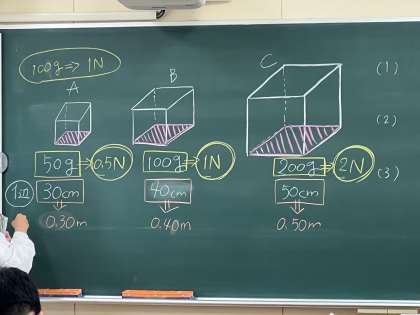 100g ⇒ 1N
A
B
C
(1)
(2)
(3)
50g ⇒ 0.5N
100g ⇒ 1N
200g ⇒ 2N
1辺
30cm
40cm
50cm
0.30m
0.40m
0.50m